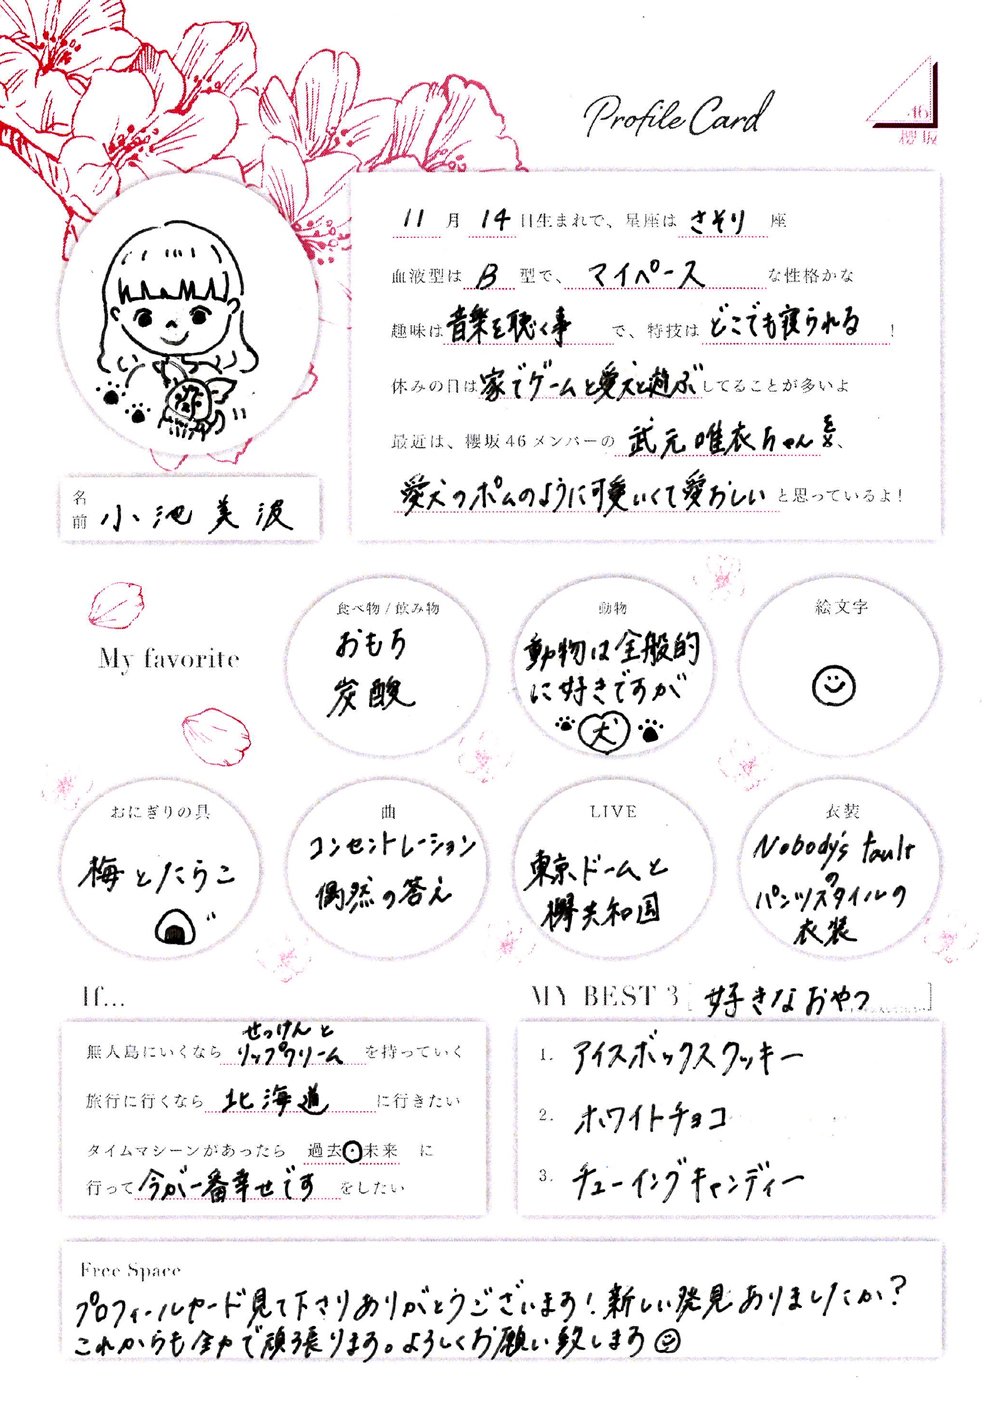 Profile Card
46
櫻坂
11月14日生まれで、星座はさそり座
血液型はB型で、マイペースな性格かな
趣味は音楽を聴く事で、特技はどこでも寝られる!
休みの日は家でゲームと愛犬と遊ぶしてることが多いよ
最近は、櫻坂46メンバーの武元唯衣ちゃん、
愛犬のポムのように可愛いくて愛おしいと思っているよ!
名前 小池美波
My favorite
食べ物/飲み物
おもち
炭酸
動物
動物は全般的
に好きですが
犬
絵文字
おにぎりの具
梅とたらこ
曲
コンセントレーション
偶然の答え
LIVE
東京ドームと
欅共和国
衣装
Nobody's fault
の
パンツスタイルの
衣装
If...
せっけんと
無人島にいくならリップクリームを持っていく
旅行に行くなら北海道に行きたい
タイムマシーンがあったら 過去・未来 に
行って今が一番幸せですをしたい
MY BEST 3 [好きなおやつ]
1. アイスボックスクッキー
2. ホワイトチョコ
3. チューイングキャンディー
Free Space
プロフィールカード見て下さりありがとうございます!新しい発見ありましたか?
これからも全力で頑張ります。よろしくお願い致します